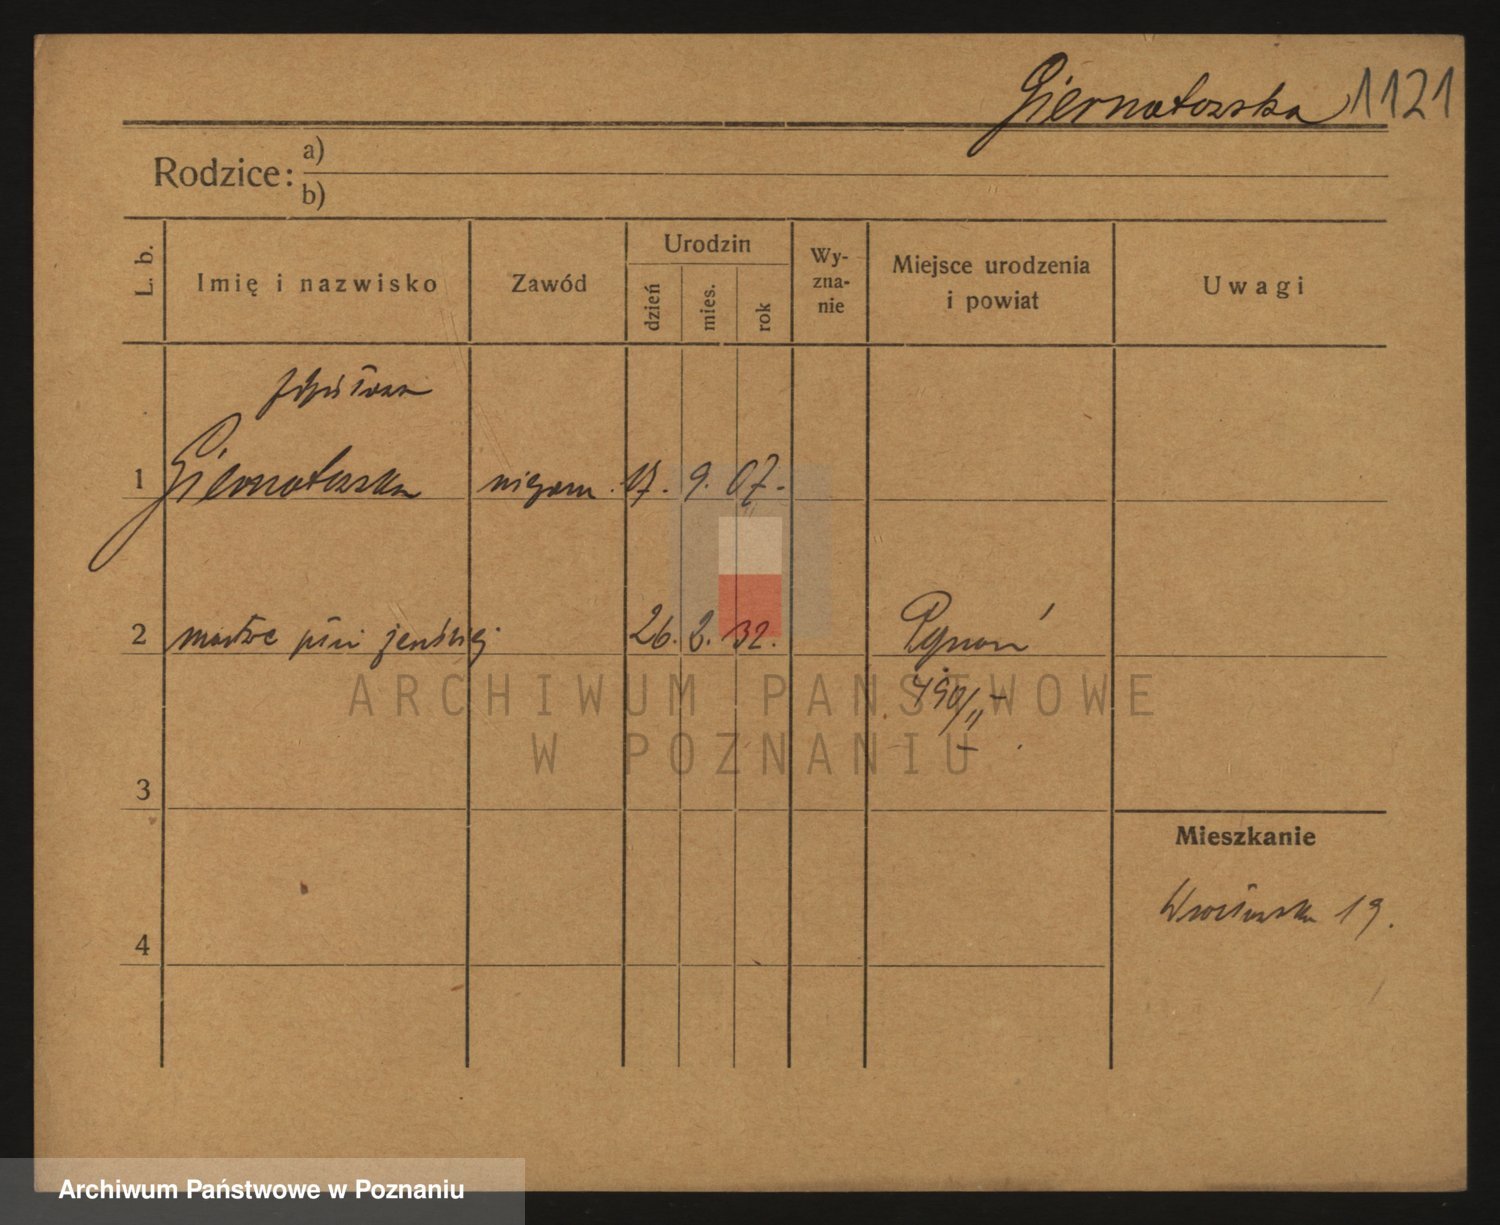 Giernatowska 1121
Rodzice: a)
b)
L. b.
Imię i nazwisko
Zawód
Urodzin
dzień
mies.
rok
Wy-
zna-
nie
Miejsce urodzenia
i powiat
Uwagi
1 Giernatowska 17. 9. 07.
2 martwe płci żeńskiej 26. 2. 32. Poznań
490/II
ARCHIWUM PAŃSTWOWE
W POZNANIU
3
Mieszkanie
Wrocławska 19.
4
Archiwum Państwowe w Poznaniu